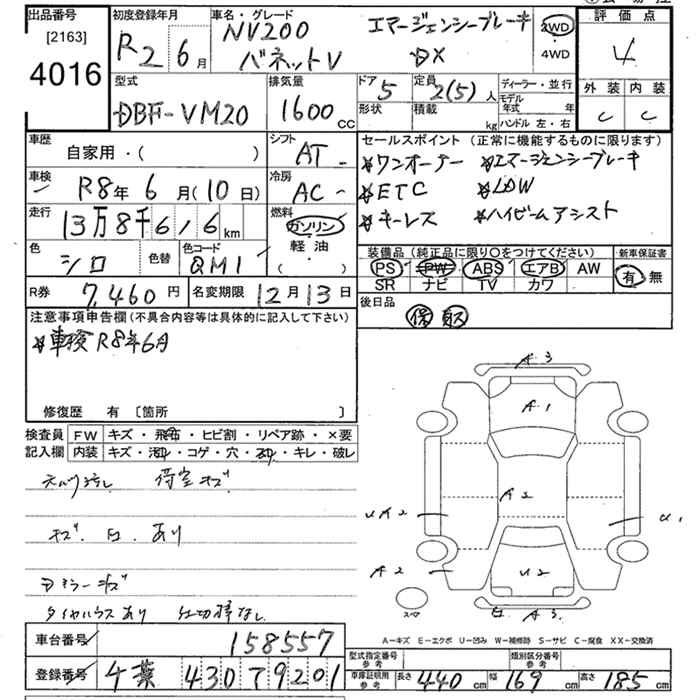 出品番号
[2163]
4016
初度登録年月
R2 6月
車名・グレード
NV200
バネットV
エマージェンシーブレーキ
DX
2WD
・
4WD
評価点
4
外装 内装
C C
型式
DBF-VM20
排気量
1600 CC
ドア 5
形状
定員 2(5)人
積載 kg
ディーラー・並行
モデル年式 年
ハンドル 左・右
車歴
自家用・( )
シフト
AT
車検
R8年6月(10日)
冷房
AC
走行
13万8千6,6 km
燃料
ガソリン
軽油
・( )
色
シロ
色替
色コード
QM1
R券 7,460円
名変期限 12月13日
セールスポイント (正常に機能するものに限ります)
*ワンオーナー *エマージェンシーブレーキ
*ETC *LDW
*キーレス *ハイビームアシスト
装備品(純正品に限り○をつけてください)
PS PW ABS エアB AW
SR ナビ TV カワ
新車保証書
有 無
後日品
保 取
注意事項申告欄(不具合内容等は具体的に記入して下さい)
*車検R8年6月
修復歴 有 〔箇所 〕
検査員記入欄
FW キズ・飛石・ヒビ割・リペア跡・×要
内装 キズ・汚れ・コゲ・穴・スレ・キレ・破レ
荷室キズ
キズ.凹.あり
ミラーキズ
タイヤハウスあり 仕切棒なし
車台番号 158557
登録番号 千葉 430 テ 9201
A3
A1
A2
UA2
U1
A2
U2
凹 A3
スペア
A-キズ E-エクボ U-凹み W-補修跡 S-サビ C-腐食 XX-交換済
型式指定番号 参考
類別区分番号 参考
車庫証明用 参考
長さ 440 cm 幅 169 cm 高さ 185 cm